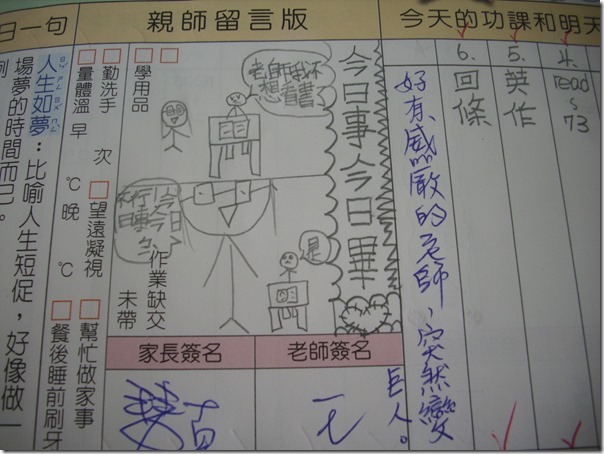 今天的功課和明天
4.
read
~
73
5.
英作
6.
回條
好有感厥的老師,突然變
巨人。
親師留言版
今日事今日畢
老師我不
想看書
是
□學用品
作業缺交
未帶
老師簽名
家長簽名
□勤洗手 次 □望遠凝視 □幫忙做家事
□量體溫 早 ℃ 晚 ℃ □餐後睡前刷牙
日一句
人生如夢:比喻人生短促,好像做一
場夢的時間而已。